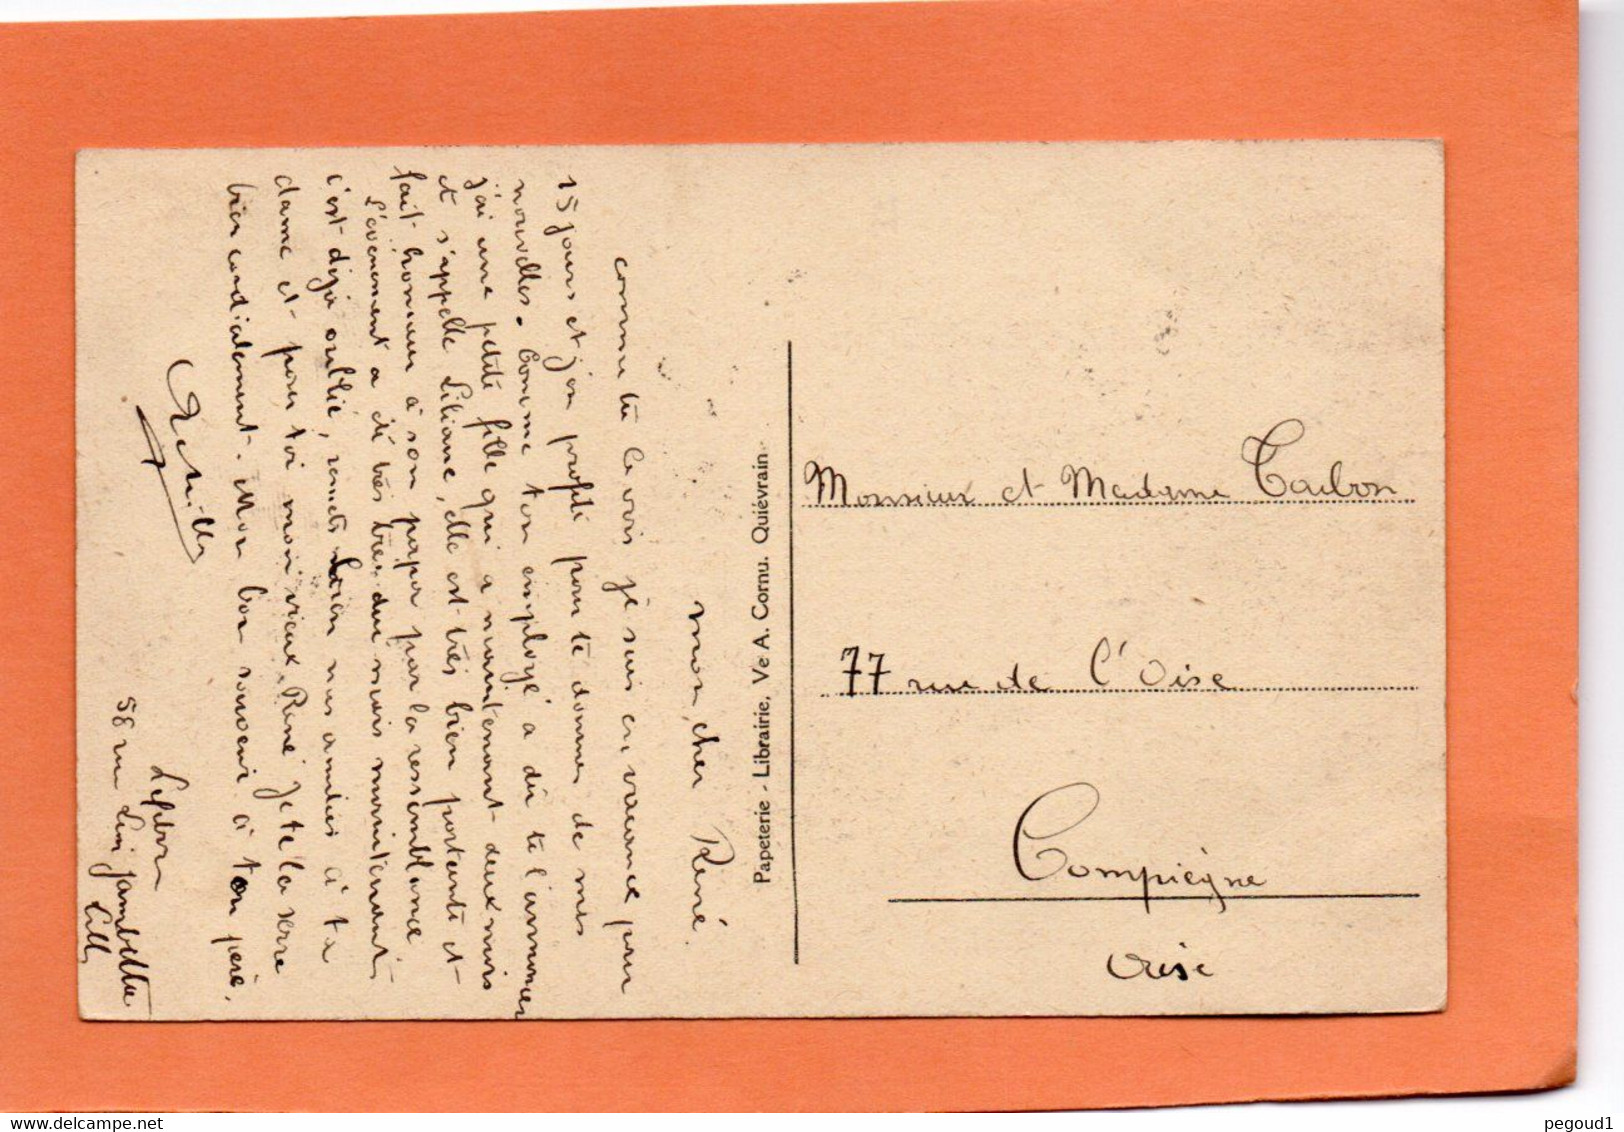 mon cher René.
comme tu le vois je suis en vacance pour
15 jours et j'en profite pour te donner de mes
nouvelles. Comme ton employé a dû te l'annoncer
j'ai une petite fille qui a maintenant deux mois
et s'appelle Liliane, elle est très bien portante et
fait honneur à son papa par la ressemblance
L'évènement a été très très dur mais maintenant
c'est déjà oublié, remets bien nos amitiés à ta
dame et pour toi mon vieux René je te la serre
bien cordialement. Mon bon souvenir à ton père.
Achille
Lefebvre
58 rue Léon Gambetta
Lille
Papeterie - Librairie, Ve A. Cornu. Quiévrain
Monsieur et Madame
77 rue de l'Oise
Compiègne
Oise
pegoud1